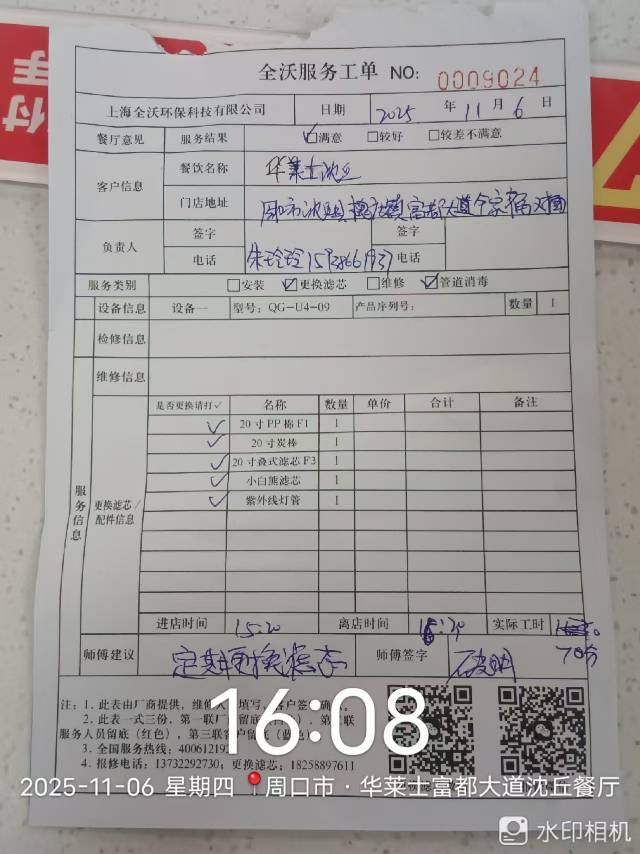 全沃服务工单 NO: 0009024
上海全沃环保科技有限公司 日期 2025 年 11 月 6 日
餐厅意见 服务结果 ☑满意 □较好 □较差不满意
客户信息 餐饮名称 华莱士沈丘
门店地址 富都大道 对面
负责人 签字 签字
电话 朱玲玲 电话
服务类别 □安装 ☑更换滤芯 □维修 ☑管道消毒
设备信息 设备一 型号: QG-U4-09 产品序列号: 数量 1
检修信息
维修信息
服务信息
更换滤芯/配件信息
是否更换请打✓ 名称 数量 单价 合计 备注
✓ 20寸PP棉F1 1
✓ 20寸炭棒 1
✓ 20寸叠式滤芯F3 1
✓ 小白熊滤芯 1
✓ 紫外线灯管 1
进店时间 15:20 离店时间 实际工时
70分
师傅建议 定期更换滤芯 师傅签字
注: 1. 此表由厂商提供, 维修人 填写, 客户签 确认。
2. 此表一式三份, 第一联厂 留底 第二联
服务人员留底(红色), 第三联客户留底(蓝色)
3. 全国服务热线: 40061219
4. 报修电话: 13732292730; 更换滤芯: 18258897611
16:08
2025-11-06 星期四 周口市·华莱士富都大道沈丘餐厅
水印相机